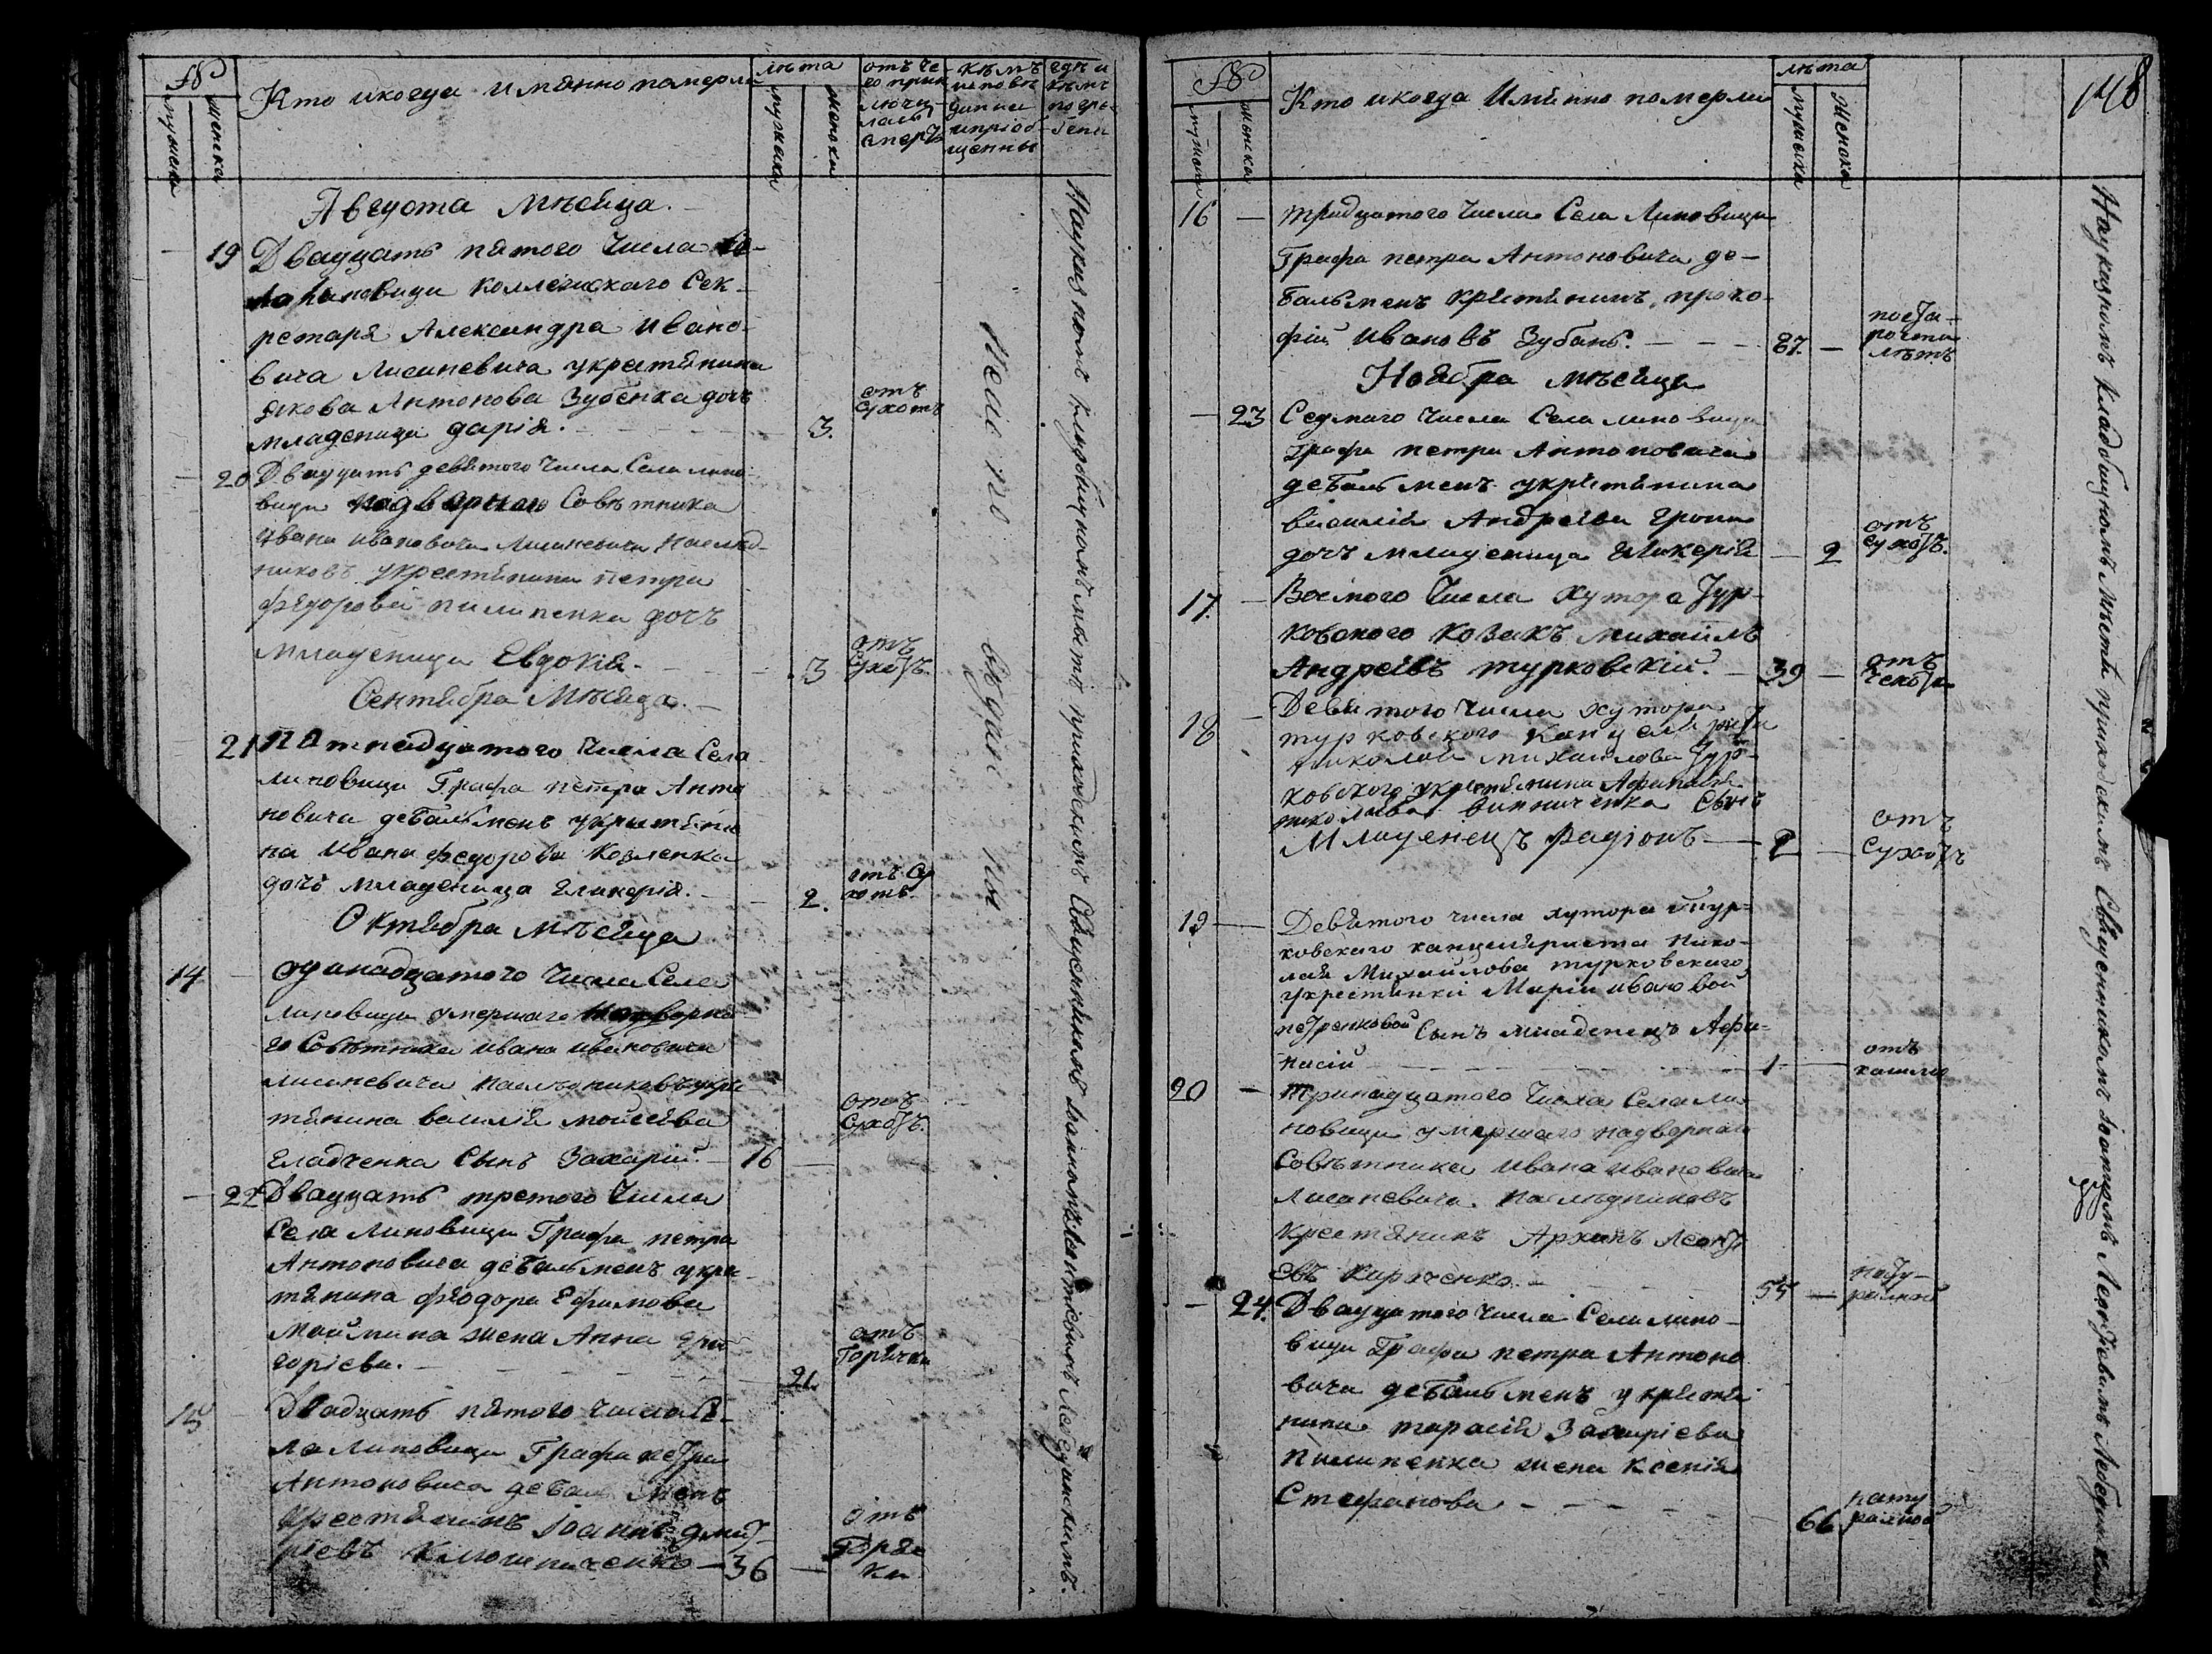 №
мужеска
женска
Кто икогда имянно померли
лѣта
мужеска
женска
отъ че-
го прик
лючи-
лась
смерть
кѣмъ
исповѣ
даны
ипріоб-
щенны
гдѣ и
кѣмъ
погрѣ-
бены
Августа мѣсяца.
19 Двадцать пятого числа Се-
ла Линовици коллежскаго Сек-
ретаря Александра Ивано-
вича Лисаневича укрестянина
Якова Антонова Зубенка дочь
младеница дарія. 3. отъ сухотъ
20 Двадцать девятого числа Села лино-
вици надворнаго Совѣтника
Ивана Ивановича Лисаневича Наслѣд-
никовъ укрестянина петра
Федорова пилипенка дочь
младеница Евдокія. 3 отъ сухотъ.
Сентября Мѣсяца.
21 пятнадцатого числа Села
линовици Графа петра Анто
новича дебальменъ укрестяни
на Ивана Федорова Козленка
дочь младеница Гликерія. 2. отъ су хотъ.
Октября мѣсяца
14 одинадцатого числа Села
Линовици умершаго надворна
го Совѣтника Ивана Ивановича
лисаневича наслѣдниковъ укре
тянина василія мойсеева
Гладченка Сынъ Захарій. 16 отъ Сухотъ.
22 Двадцать третого числа
Села Линовици Графа петра
Антоновича дебальменъ укре-
тянина феодора Ефимова
Моймина жена Анна гри
горіева. 21. отъ Горячки
15 Двадцать пятого числа Се-
ла Линовици Графа петра
Антоновича дебальменъ
крестянинъ Іоаннъ дмит-
ріевъ 36 отъ Горяч ки
Недс но вѣдан ны.
На указномъ кладбищномъ мѣстѣ приходскимъ Священникомъ Іоанномъ Леонтіевимъ Лебединскимъ.
148
№
мужеска
женска
Кто икогда Имянно померли
лѣта
мужеска
женска
16 тридцатого числа Села Линовици
Графа петра Антоновича де-
бальменъ крестянинъ проко-
фій Ивановъ Зубань. 87. поста- рости лѣтъ
Ноября мѣсяца
23 Седмаго числа Села лино вици
графа петра Антоновича
дебальменъ укрестянина
василія Андреева Грони
дочь младеница Гликерія 2 отъ сухотъ.
17. Восмого числа Хутора Тур-
ковского козакъ михаилъ
Андреевъ турковскій. 39 отъ чехотки
18 Девятого числа хутора
турковского канцеляриста
николая михаилова Тур-
ковского укрестянина Афанасія
николаева винниченка Сынъ
Младенецъ радіонъ 2 отъ Сухотъ
19 Девятого числа хутора Тур-
ковскаго канцеляриста Нико-
лая Михайлова турковскаго
укрестянки Маріи ивановой
петренковой Сынъ младенецъ Афа-
насій 1 отъ кашлю
20 тринадцатого числа Села Ли-
новици умершаго надворнаго
Совѣтника Ивана Ивановича
Лисаневича наслѣдниковъ
крестянинъ Архипъ Леонт
евъ Кирченко. 55 нату- ралной
24. Двадцатого числа Села лино-
вици Графа петра Антоно
вича дебальменъ укрестя
нина тарасія Захаріева
пилипенка жена Ксенія
Стефанова 66 нату ралной
На указномъ кладбищномъ мѣстѣ приходскимъ Священникомъ Іоанномъ Леонтіевимъ Лебединскимъ